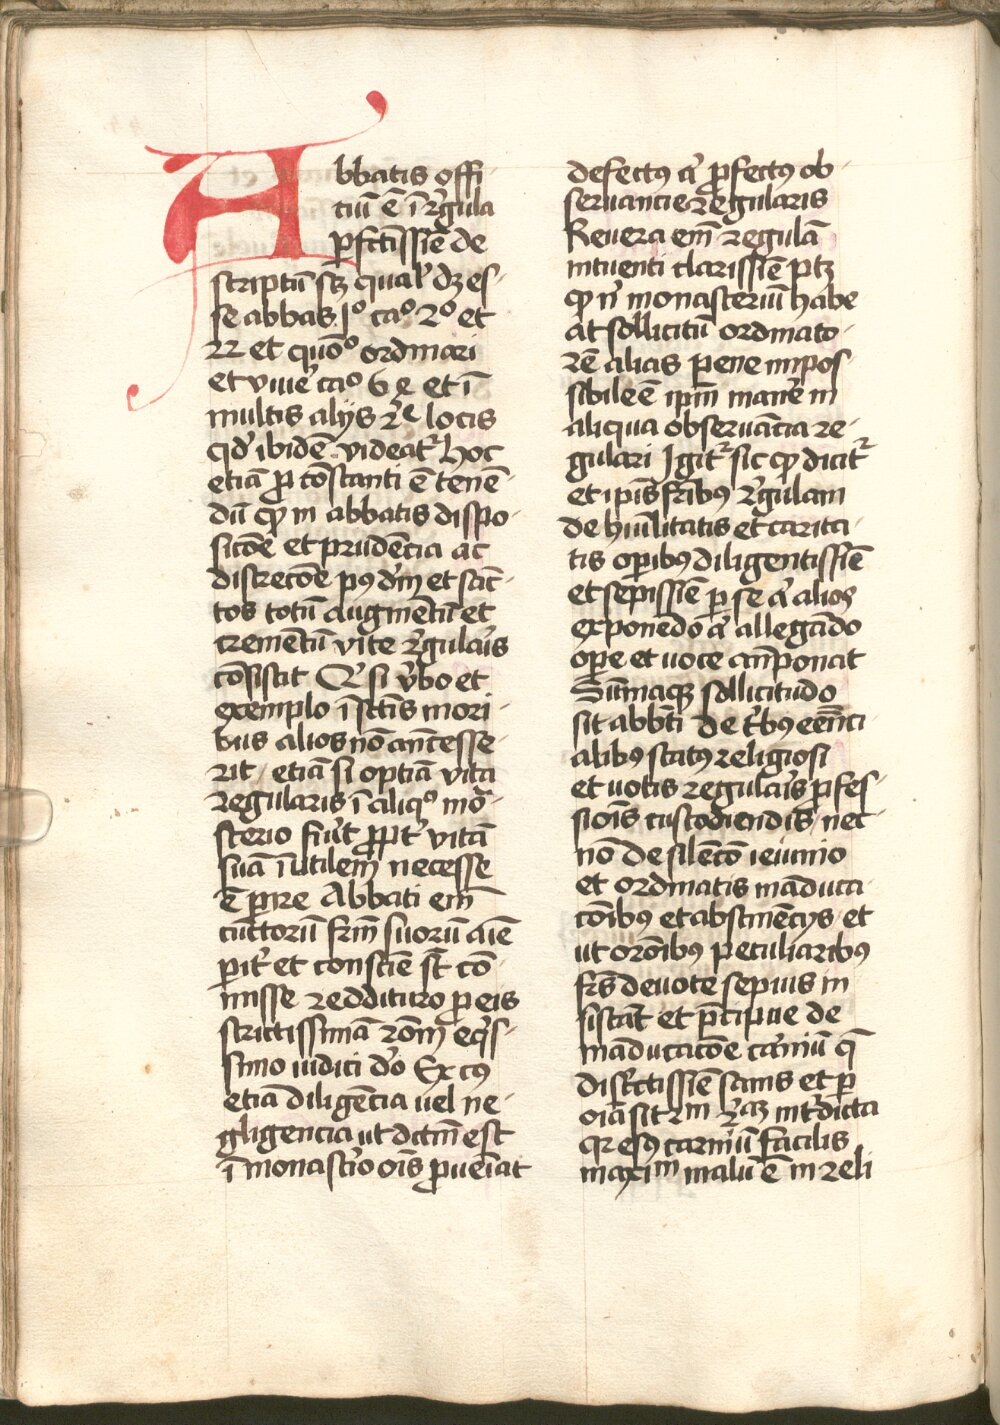 Abbatis offi
tiū ē ī rgula
pfctissiē de
scriptū scz qual' dz es-
se abbas. 1o cao 2o et
22 et quōo ordinari
et viue' cao 62 et ī
multis alijs re locis
qd' ibidē videat' Hoc
etiā p cōstanti ē tenē-
dū qp in abbatis dispo-
sicōe et prudēcia ac
discrecōe p9 dm et sāc-
tos totū augmētū et
cremētū vite rgulais
cōsistit Qr si vbo et
exemplo ī sctis mori-
bus alios nō ancesse-
rit, etiā si optiā vita
regularis ī aliqo mō-
sterio fiut' ppt' vitā
suā īutilem necesse
ē pire Abbati em
cūctorū frm suorū aīe
pit' et consciē st cō-
misse redditturo p eis
strictissimā rōm eqs-
simo iudici dō Ex c9
etiā diligēcia uel ne-
gligencia ut dctm est
ī monastio oīs pueīat
defect9 a' pfect9 ob-
seruancie regularis
Reuera em regulā
intuenti clarissiē ptz
qp n' monasteriū habe
at sollicitū ordinato-
rē alias pene impos-
sibile ē ipm mane' in
aliqua obseruācia re-
gulari Igit' sic qp dicit'
et ipis fribus rgulam
de hūilitatis et carita-
tis opibus diligentissiē
et sepissiē p se a' alios
exponēdo a' allegādo
ope et uoce anponat
Sūmaqz sollicitudo
sit abbti de rb9 eēnci-
alib9 stat9 religiosi
et uotis regulais pfes-
siois custodiendis, nec
nō de silēcō ieiunio
et ordinatis māduca-
cōib9 et abstinēcijs et
ut orōib9 peculiarib9
frs deuote sepius in
sistāt et pcipue de
māducacōe carniū q
discrtissiē sanis et p
oīa sit 2m raz int'dicta
qr es9 carniū facilis
maxim malū ē in reli